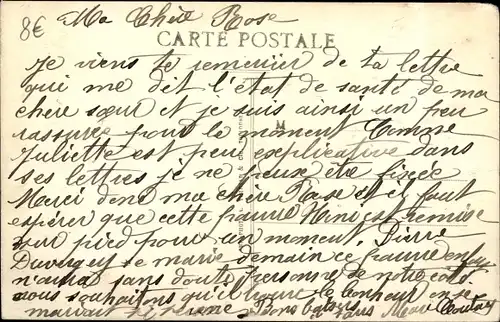 8€
Ma Chère Rose
CARTE POSTALE
Je viens te remercier de ta lettre
qui me dit l'état de santé de ma
chere sœur et je suis ainsi un peu
rassuré pour le moment Comme
Juliette est peu explicative dans
ses lettres je ne peux être fixée
Merci donc ma chère Rose et il faut
espérer que cette pauvre Nini est remise
sur pied pour un moment. Pierre
Duvergey se marie demain ce pauvre
n'aura sans doute personne de notre coté
nous souhaitons qu'il trouve le bonheur en se
mariant bons baisers